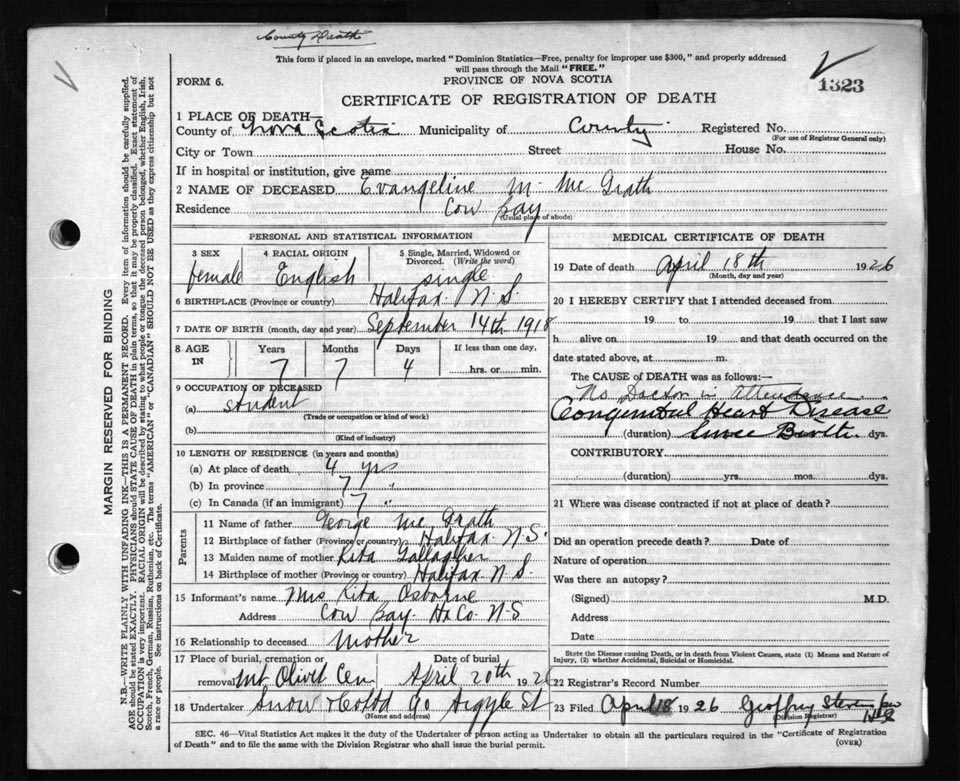 County Death
This form if placed in an envelope, marked "Dominion Statistics—Free, penalty for improper use $300," and properly addressed
will pass through the Mail "FREE."
1323
FORM 6.
PROVINCE OF NOVA SCOTIA
CERTIFICATE OF REGISTRATION OF DEATH
1 PLACE OF DEATH—
County of Nova Scotia Municipality of County Registered No.
(For use of Registrar General only)
City or Town Street House No.
If in hospital or institution, give name
2 NAME OF DECEASED Evangeline M. Mc Grath
Residence Cow Bay
(Usual place of abode)
PERSONAL AND STATISTICAL INFORMATION
3 SEX female
4 RACIAL ORIGIN English
5 Single, Married, Widowed or
Divorced. (Write the word)
single
6 BIRTHPLACE (Province or country) Halifax. N.S.
7 DATE OF BIRTH (month, day and year) September 14th 1918
8 AGE IN Years 7 Months 7 Days 4
If less than one day,
hrs. or min.
9 OCCUPATION OF DECEASED
(a) student
(Trade or occupation or kind of work)
(b)
(Kind of industry)
10 LENGTH OF RESIDENCE (in years and months)
(a) At place of death 4 yrs
(b) In province 7 "
(c) In Canada (if an immigrant) 7 "
Parents
11 Name of father George Mc Grath
12 Birthplace of father (Province or country) Halifax N S.
13 Maiden name of mother Rita Gallagher
14 Birthplace of mother (Province or country) Halifax N S.
15 Informant's name Mrs Rita Osborne
Address Cow Bay Hx Co. N-S
16 Relationship to deceased Mother
17 Place of burial, cremation or
removal Mt Olivet Cem
Date of burial
April 20th 1926
18 Undertaker Snow & Co Ltd 90 Argyle St
(Name and address)
MEDICAL CERTIFICATE OF DEATH
19 Date of death April 18th 1926
(Month, day and year)
20 I HEREBY CERTIFY that I attended deceased from
19 to 19 that I last saw
h alive on 19 and that death occurred on the
date stated above, at m.
The CAUSE of DEATH was as follows:—
No Doctor in Attendance
Congenital Heart Disease
(duration) Since Birth dys.
CONTRIBUTORY
(duration) yrs. mos. dys.
21 Where was disease contracted if not at place of death?
Did an operation precede death? Date of
Nature of operation
Was there an autopsy?
(Signed) M.D.
Address
Date
State the Disease causing Death, or in death from Violent Causes, state (1) Means and Nature of
Injury, (2) whether Accidental, Suicidal or Homicidal.
22 Registrar's Record Number
23 Filed April 18 1926 Geoffrey Stevens
(Division Registrar)
SEC. 46—Vital Statistics Act makes it the duty of the Undertaker or person acting as Undertaker to obtain all the particulars required in the "Certificate of Registration
of Death" and to file the same with the Division Registrar who shall issue the burial permit.
(OVER)
MARGIN RESERVED FOR BINDING
N.B.—WRITE PLAINLY WITH UNFADING INK—THIS IS A PERMANENT RECORD. Every item of information should be carefully supplied.
AGE should be stated EXACTLY. PHYSICIANS should STATE CAUSE OF DEATH in plain terms, so that it may be properly classified. Exact statement of
OCCUPATION is very important. RACIAL ORIGIN will be described by stating to what people or tongue, the deceased person belonged, whether English, Irish,
Scotch, French, German, Russian, Ruthenian, etc. The terms "AMERICAN" or "CANADIAN" SHOULD NOT BE USED as they express citizenship but not
a race or people. See instructions on back of Certificate.